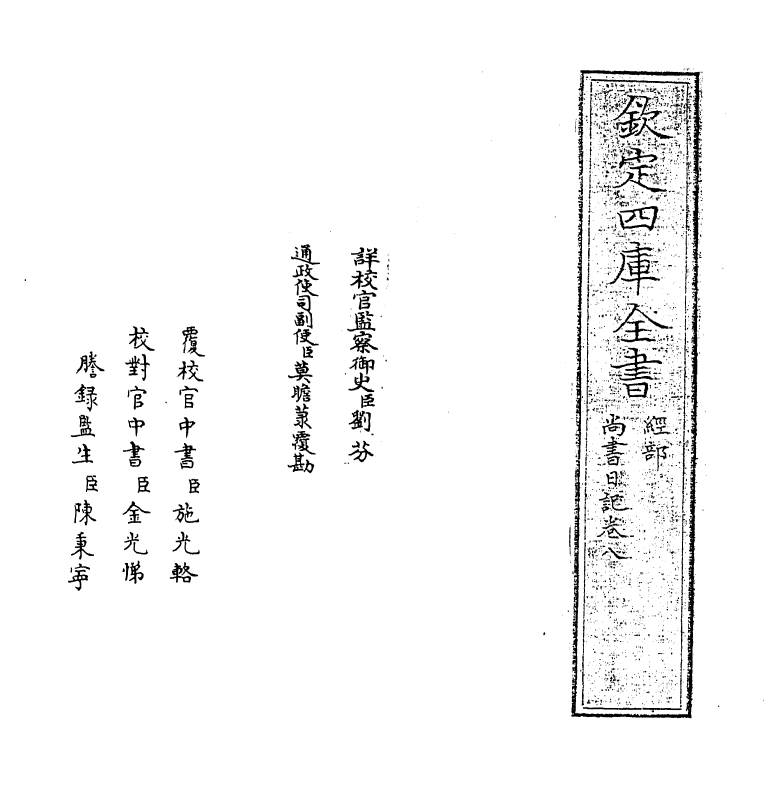 欽定四庫全書
經部
尚書日記卷八
詳校官監察御史臣劉芬
通政使司副使臣莫瞻菉覆勘
覆校官中書臣施光輅
校對官中書臣金光悌
謄錄監生臣陳秉寧